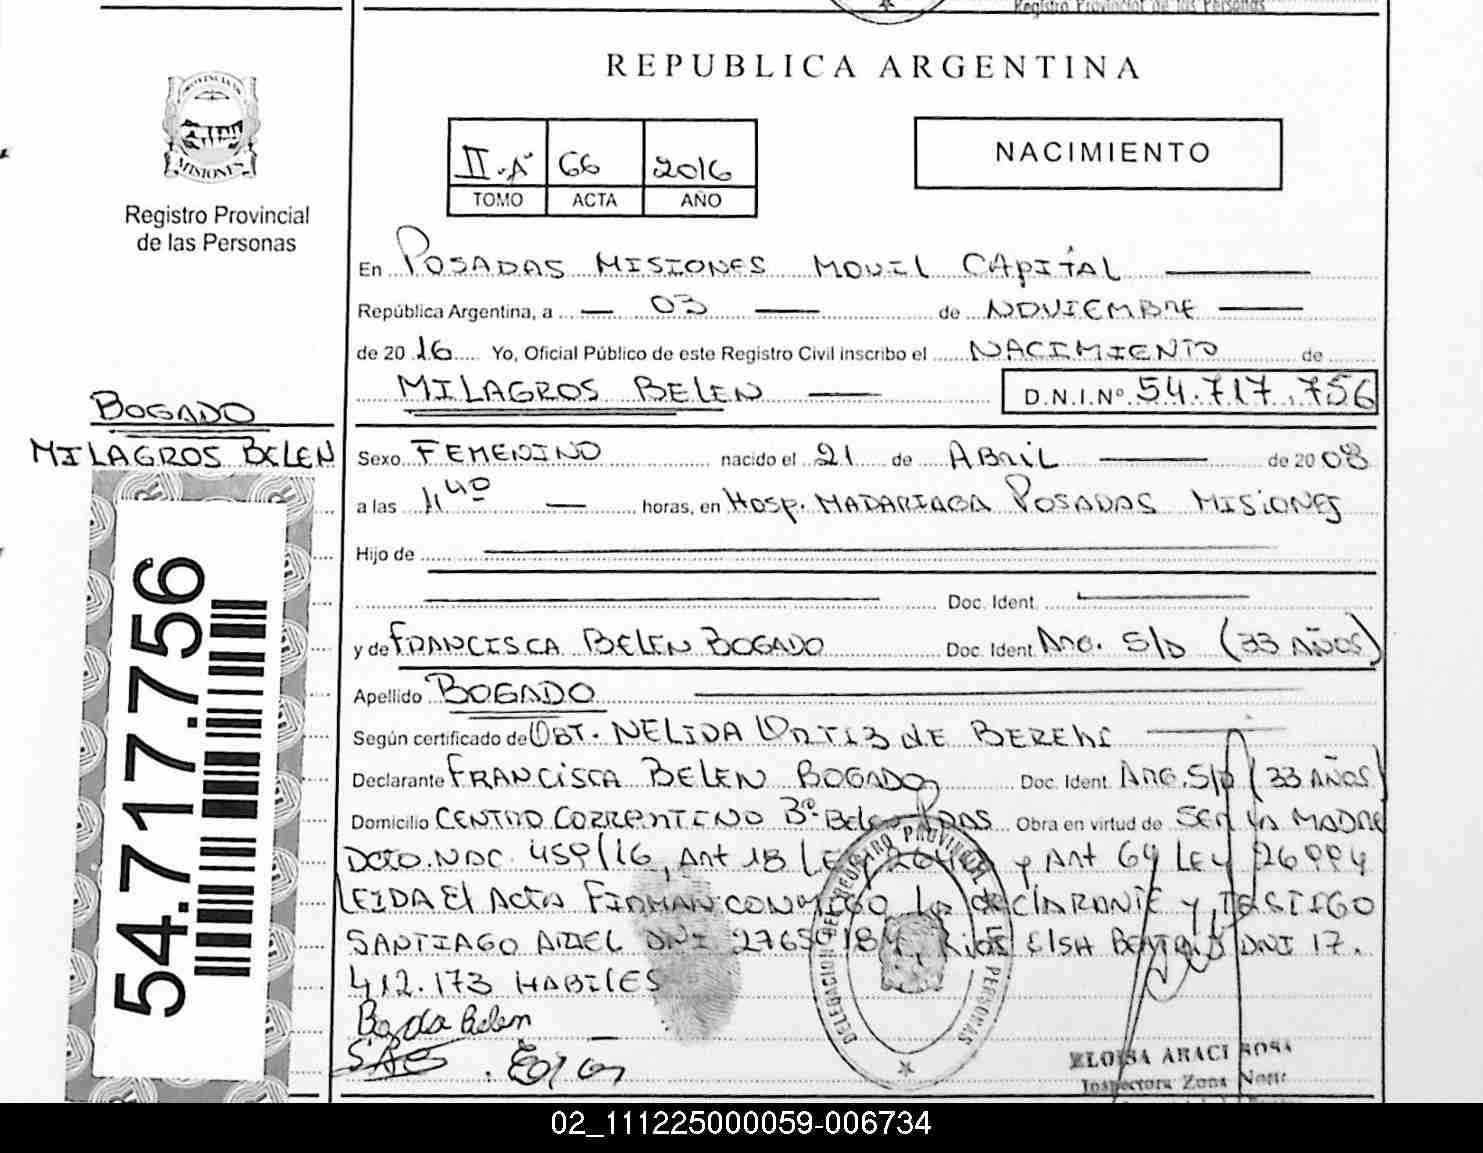 Registro Provincial de las Personas
REPUBLICA ARGENTINA
MISIONES
Registro Provincial
de las Personas
II.A 66 2016
TOMO ACTA AÑO
NACIMIENTO
En POSADAS MISIONES MOVIL CAPITAL
República Argentina, a 03 de NOVIEMBRE
de 2016 Yo, Oficial Público de este Registro Civil inscribo el NACIMIENTO de
MILAGROS BELEN D.N.I.Nº 54.717.756
BOGADO
MILAGROS BELEN
Sexo FEMENINO nacido el 21 de ABRIL de 2008
a las 11 40 horas, en HOSP. MADARIAGA POSADAS MISIONES
Hijo de
Doc. Ident.
y de FRANCISCA BELEN BOGADO Doc. Ident. ARG. S/D (33 AÑOS)
Apellido BOGADO
Según certificado de OBT. NELIDA ORTIZ DE
Declarante FRANCISCA BELEN BOGADO Doc. Ident. ARG. S/D (33 AÑOS)
Domicilio CENTRO CORRENTINO Bº Belen PDAS Obra en virtud de SER LA MADRE
DCTO. NAC. 459/16, Art 1B LEY y Art 64 LEY 26994
LEIDA El Acta FIRMAN CONMIGO LA DECLARANTE y TESTIGO
SANTIAGO DNI RIOS ELSA BEATRIZ DNI 17.
412.173 HABILES
54.717.756
Belen
DELEGACION DEL REGISTRO PROVINCIAL DE LAS PERSONAS
ELOISA ARACI SOSA
Inspectora Zona Norte
02_111225000059-006734